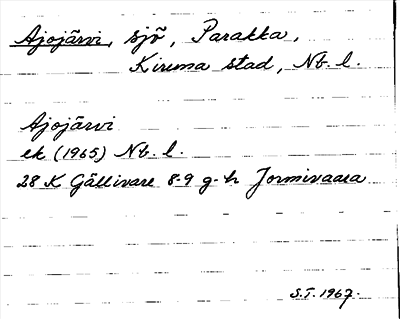 Ajojärvi, sjö, Parakka,
Kiruna stad, Nb. l.
Ajojärvi
ek (1965) Nb. l.
28 K Gällivare 8-9 g-h Jormivaara
S.I. 1967.